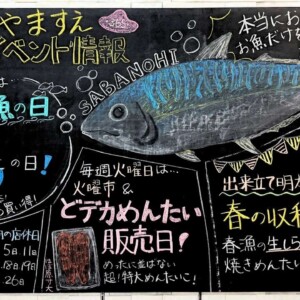 やますえ
ベント情報
本当にお
お魚だけを
SABANOHI
は
魚の日
の日!
買い得
毎週火曜日は…
火曜市&
どデカめんたい
販売日!
めったに並ばない
超!特大めんたいこ!
出来立て明太
春の収穫
春漁の生しら
焼きめんたい
の店休日
5日11日
18日19日
26日